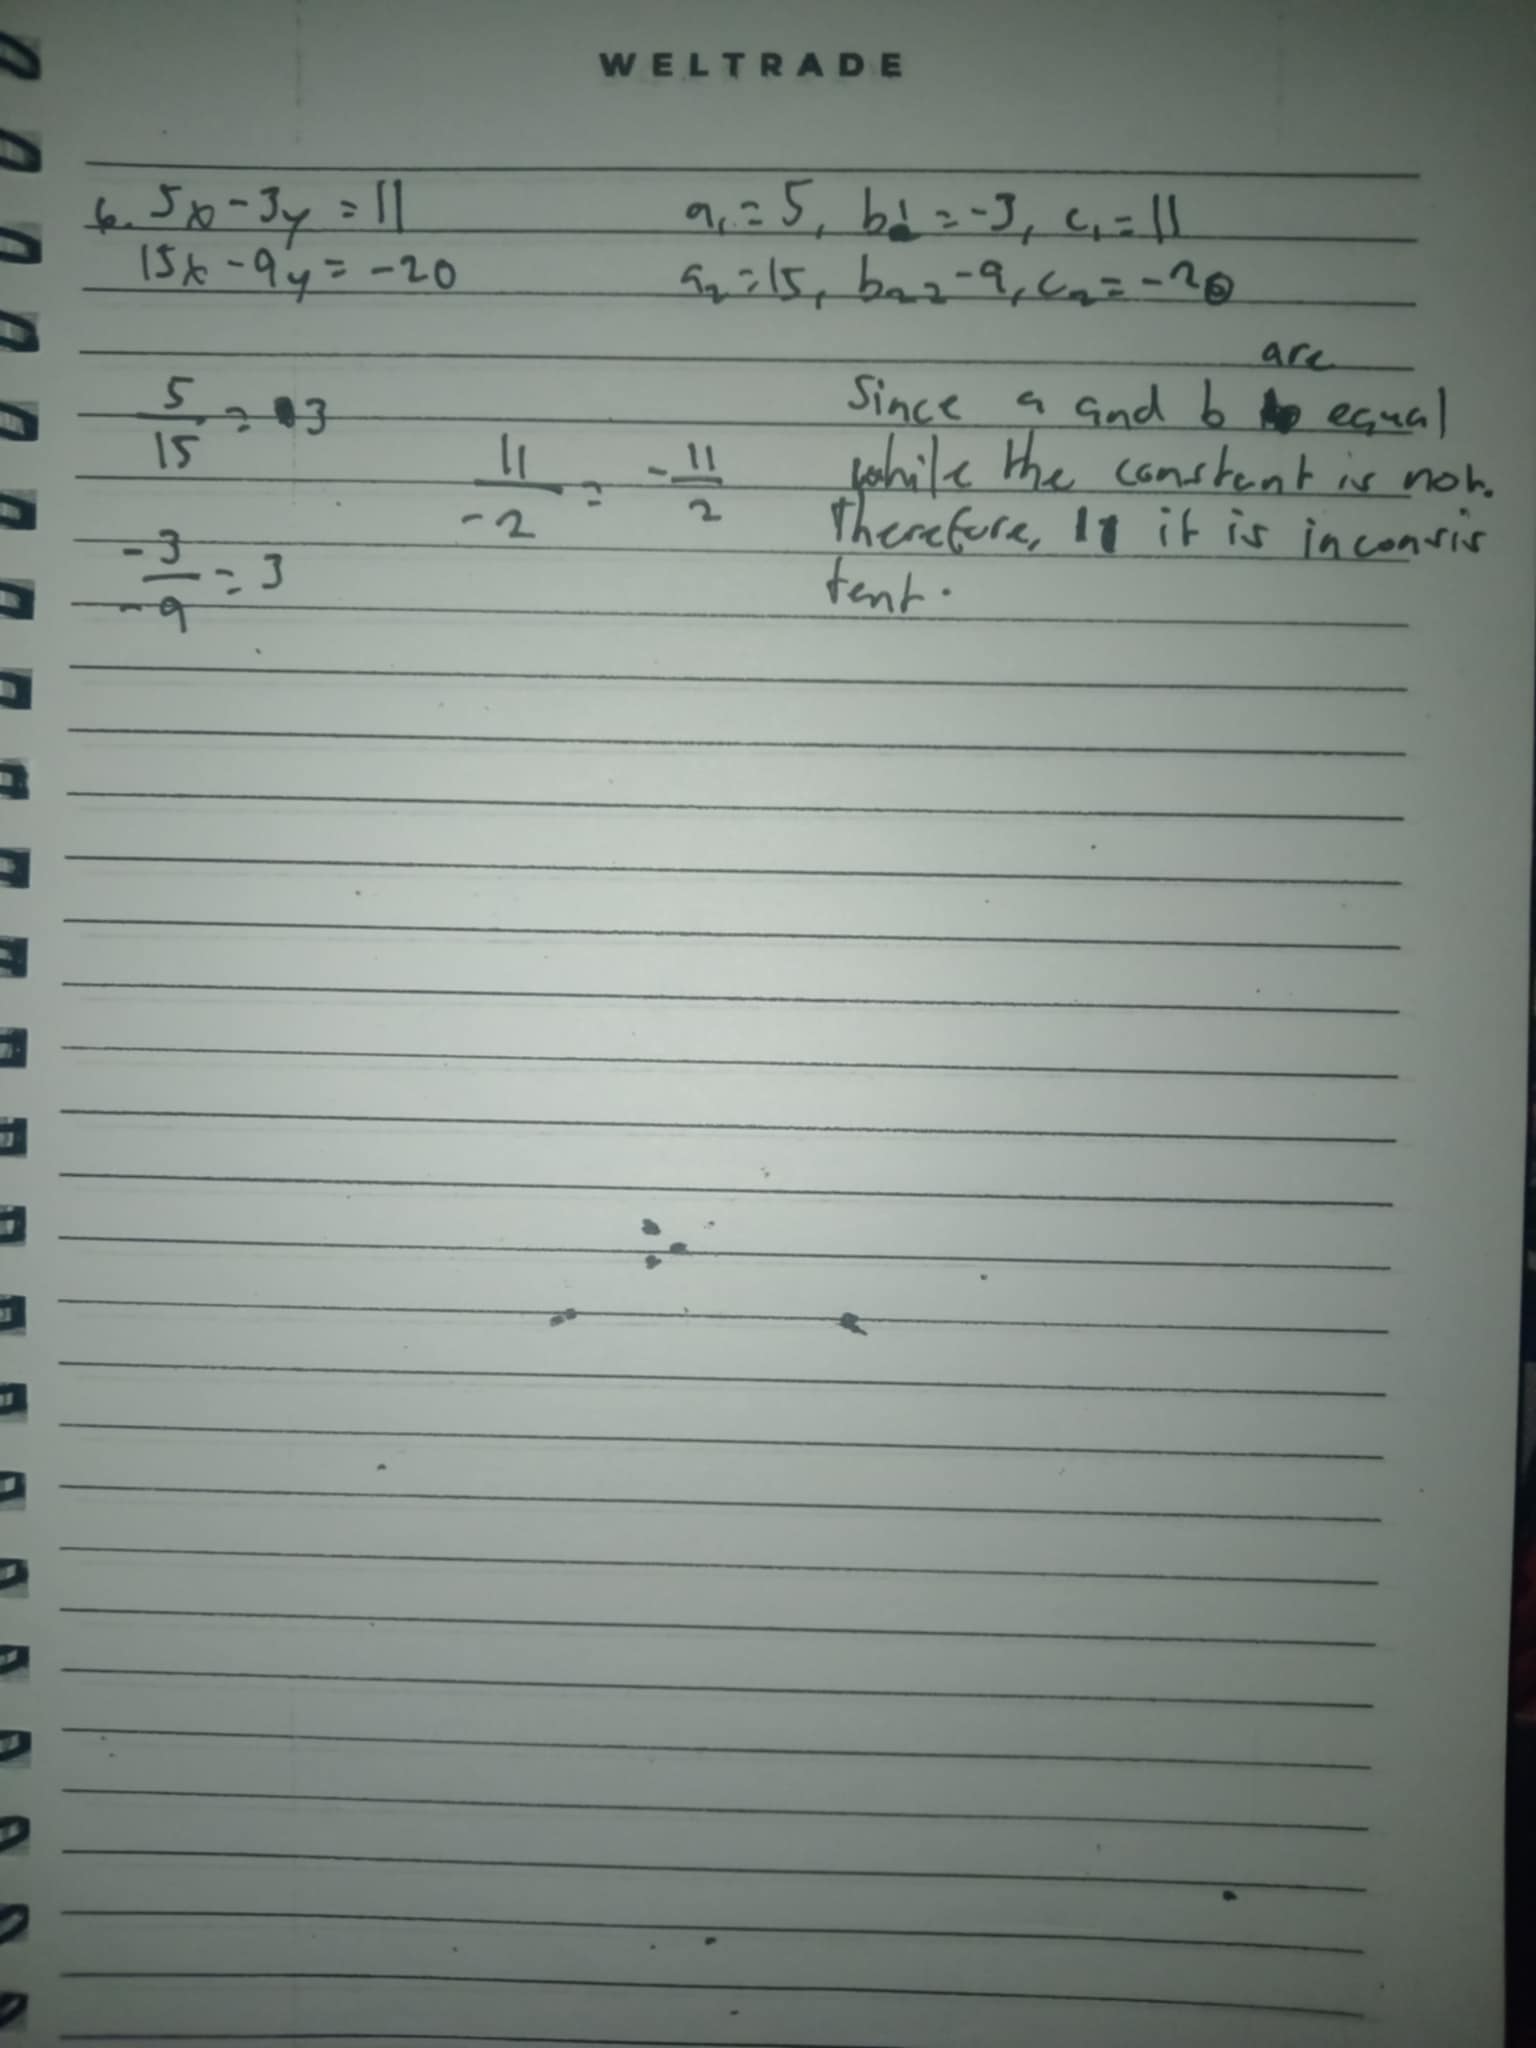 WELTRADE
6. 5x - 3y = 11
15x - 9y = -20
a₁ = 5, b1 = -3, c₁ = 11
a₂ = 15, b₂ = -9, c₂ = -20
5/15 = 3
-3/-9 = 3
11/-2 = -11/2
are
Since a and b equal
while the constant is not.
Therefore, it is inconsis
tent.